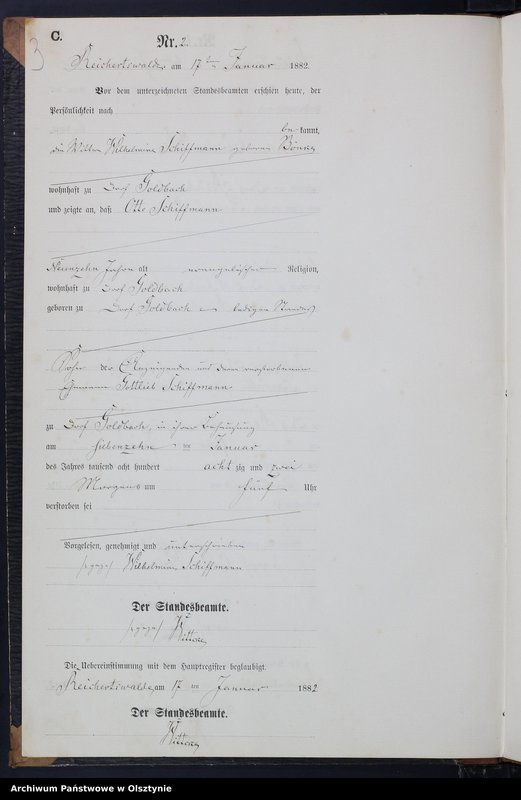 C.
3
Nr. 2.
Reichertswalde am 17ten Januar 1882.
Vor dem unterzeichneten Standesbeamten erschien heute, der
Persönlichkeit nach
bekannt,
die Wittwe Wilhelmine Schiffmann geborene
wohnhaft zu Dorf Goldbach
und zeigte an, daß Otto Schiffmann
Neunzehn Jahre alt evangelischer Religion,
wohnhaft zu Dorf Goldbach
geboren zu Dorf Goldbach ledigen Standes
Sohn der Anzeigenden und deren verstorbenen
Ehemann Gottlieb Schiffmann
zu Dorf Goldbach, in ihrer Behausung
am siebenzehnten Januar
des Jahres tausend acht hundert achtzig und zwei
Morgens um fünf Uhr
verstorben sei
Vorgelesen, genehmigt und unterschrieben
/:gez:/ Wilhelmine Schiffmann
Der Standesbeamte.
/:gez:/
Die Uebereinstimmung mit dem Hauptregister beglaubigt.
Reichertswalde, am 17ten Januar 1882
Der Standesbeamte.
Archiwum Państwowe w Olsztynie